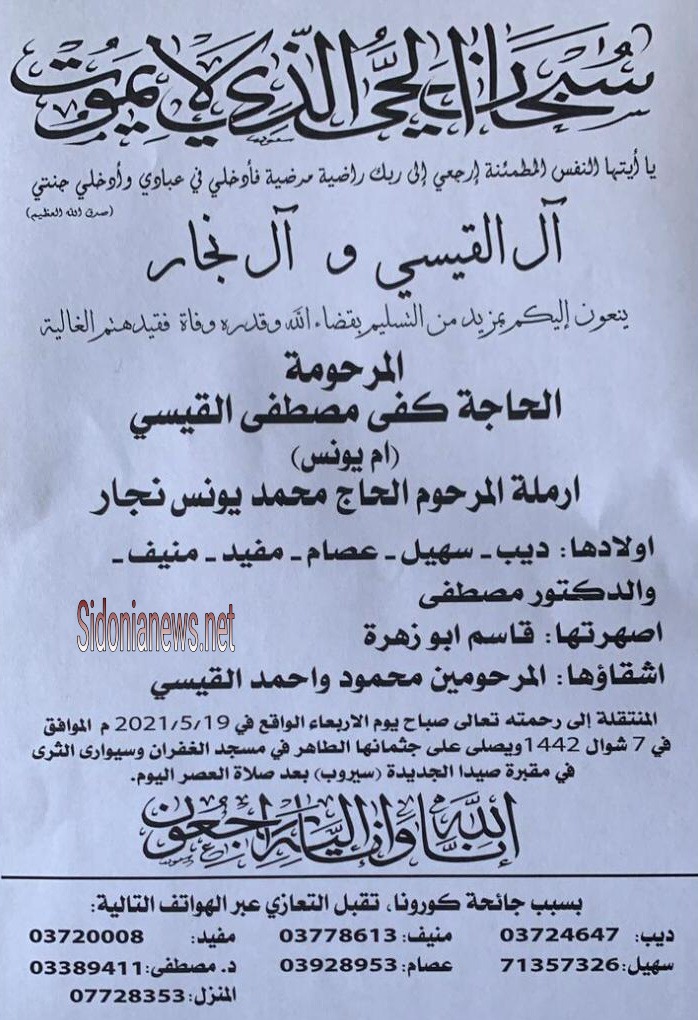 سُبْحَانَ الحَيِّ الَّذِي لا يَمُوت
يا أيتها النفس المطمئنة إرجعي إلى ربك راضية مرضية فأدخلي في عبادي وأدخلي جنتي
(صدق الله العظيم)
آل القيسي و آل نجار
ينعون إليكم بمزيد من التسليم بقضاء الله وقدره وفاة فقيدهتم الغالية
المرحومة
الحاجة كفى مصطفى القيسي
(ام يونس)
ارملة المرحوم الحاج محمد يونس نجار
اولادها: ديب ـ سهيل ـ عصام ـ مفيد ـ منيف ـ
والدكتور مصطفى
Sidonianews.net
اصهرتها: قاسم ابو زهرة
اشقاؤها: المرحومين محمود واحمد القيسي
المنتقلة إلى رحمته تعالى صباح يوم الاربعاء الواقع في 2021/5/19 م الموافق
في 7 شوال 1442 ويصلى على جثمانها الطاهر في مسجد الغفران وسيوارى الثرى
في مقبرة صيدا الجديدة (سيروب) بعد صلاة العصر اليوم.
إنا لله وإنا إليه راجعون
بسبب جائحة كورونا، تقبل التعازي عبر الهواتف التالية:
ديب: 03724647 منيف: 03778613 مفيد: 03720008
سهيل: 71357326 عصام: 03928953 د. مصطفى: 03389411
المنزل: 07728353